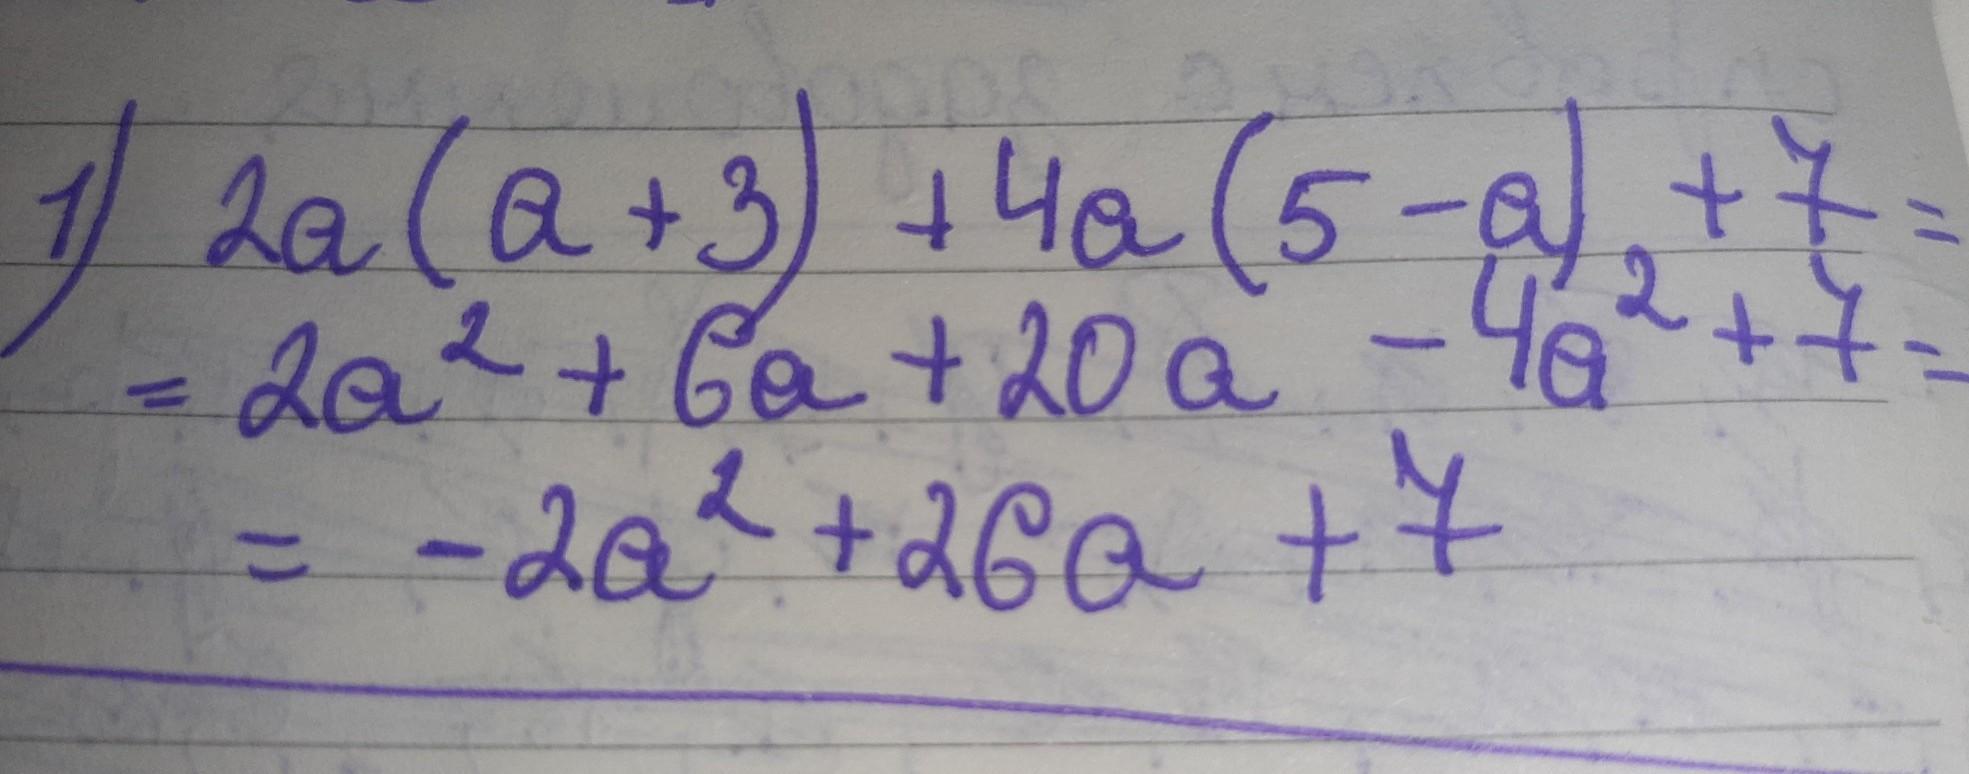 1) 2a(a+3)+4a(5-a)+7=
=2a²+6a+20a-4a²+7=
=-2a²+26a+7